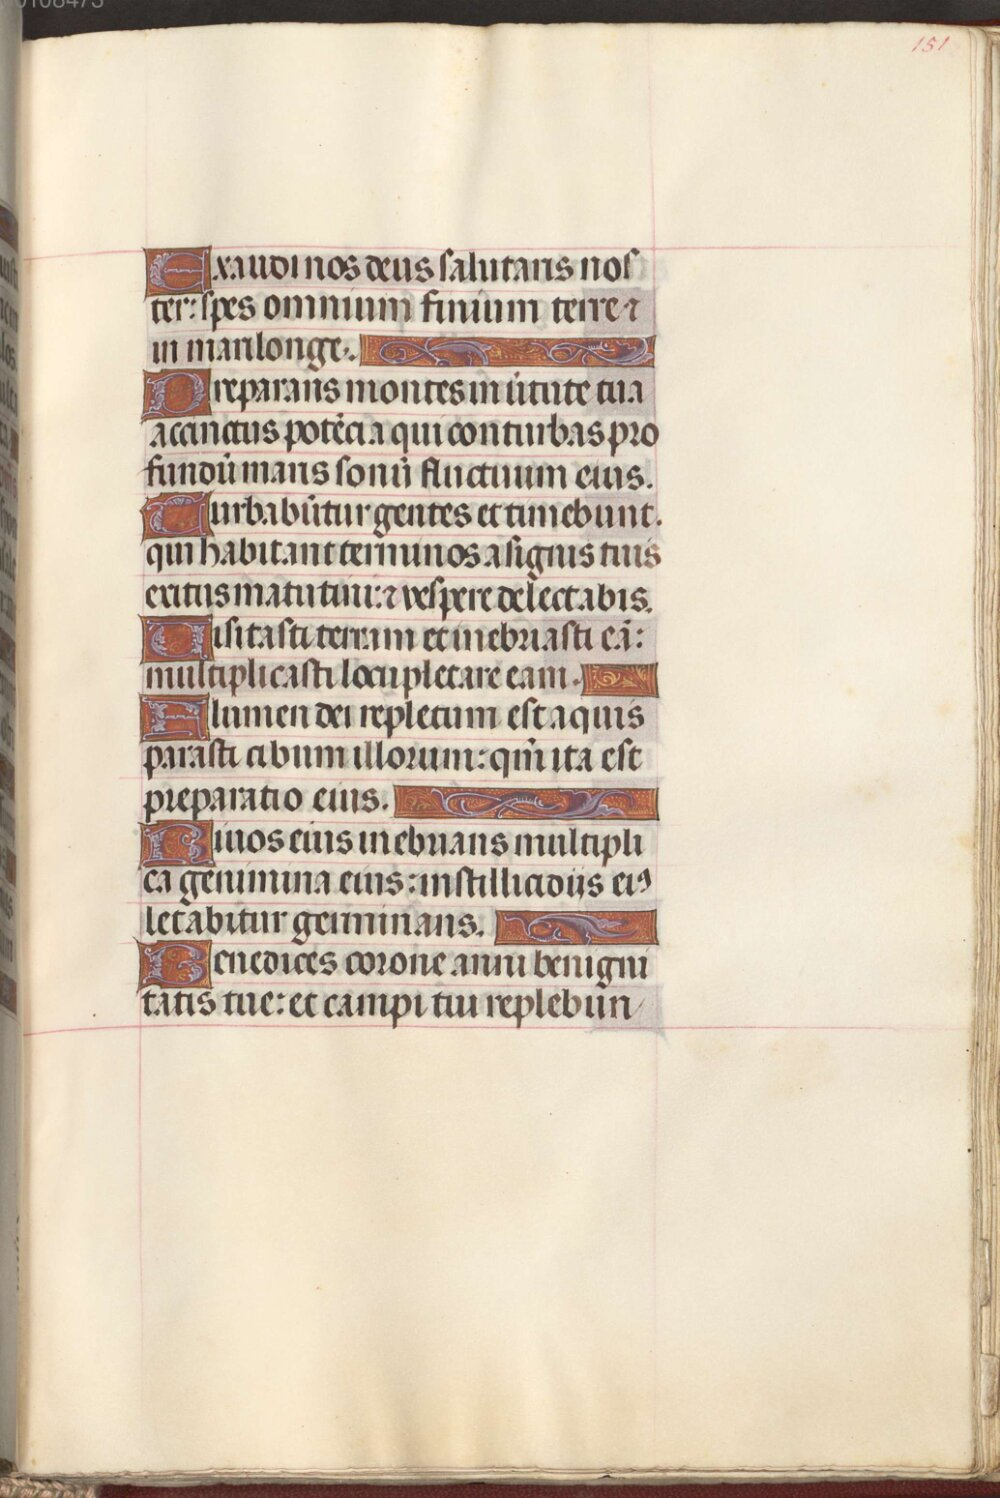 151
Exaudi nos deus salutaris nos
ter: spes omnium finium terre ⁊
in mari longe.
Preparans montes in ũtute tua
accinctus potẽcia qui conturbas pro
fundũ maris sonũ fluctuum eius.
Turbabũtur gentes et timebunt.
qui habitant terminos a signis tuis
exitus matutini: ⁊ vespere delectabis.
Uisitasti terram et inebriasti eã:
multiplicasti locupletare eam.
Flumen dei repletum est aquis
parasti cibum illorum: qm̃ ita est
preparatio eius.
Riuos eius inebrians multipli
ca genimina eius: in stillicidijs eiꝰ
letabitur germinans.
Benedices corone anni benigni
tatis tue: et campi tui replebun